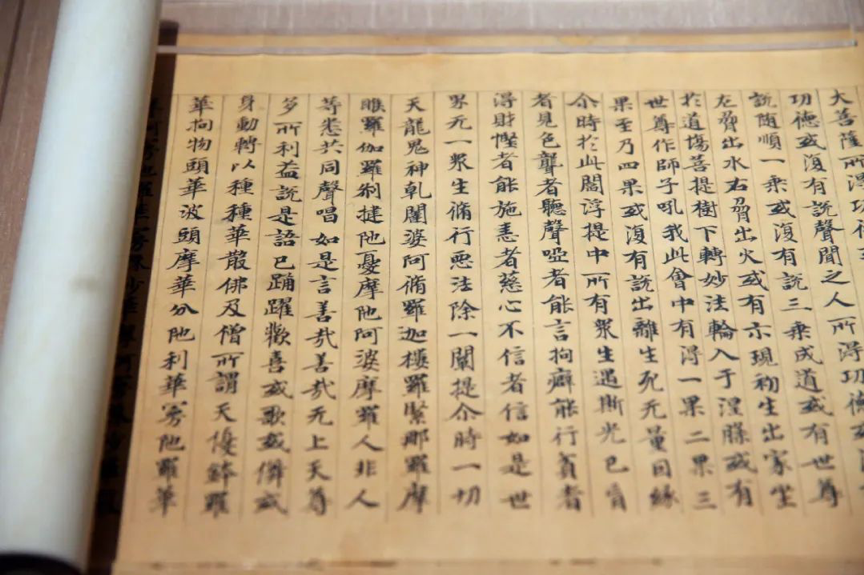 大菩薩所得功德
功德或復有說聲聞之人所得功德
說隨順一乘或復有說三乘成道或有世尊
左脅出水右脅出火或有示現初生出家坐
於道場菩提樹下轉妙法輪入于涅槃或有
世尊作師子吼我此會中有得一果二果三
果至乃四果或復有說出離生死无量因緣
尒時於此閻浮提中所有眾生遇斯光已盲
者見色聾者聽聲啞者能言拘癖能行貧者
得財慳者能施恚者慈心不信者信如是世
界无一眾生脩行惡法除一闡提尒時一切
天龍鬼神乹闥婆阿脩羅迦樓羅緊那羅摩
睺羅伽羅剎揵陁憂摩陁阿婆摩羅人非人
等悉共同聲唱如是言善哉善哉无上天尊
多所利益說是語已踊躍歡喜或歌或儛或
身動轉以種種華散佛及僧所謂天優鉢羅
華拘物頭華波頭摩華分陁利華㝑陁羅華